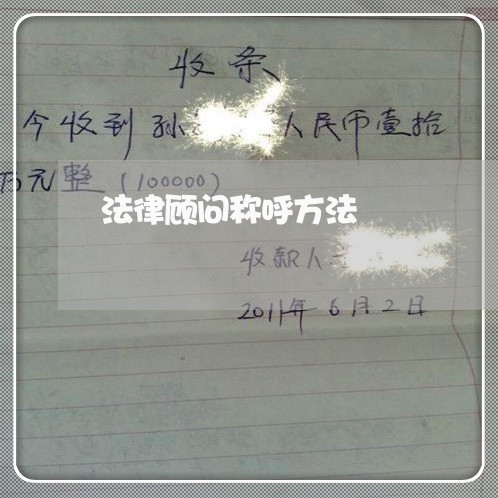 收条
今收到孙 人民币壹拾
万元整(100000)
法律顾问称呼方法
收款人
2011年6月2日